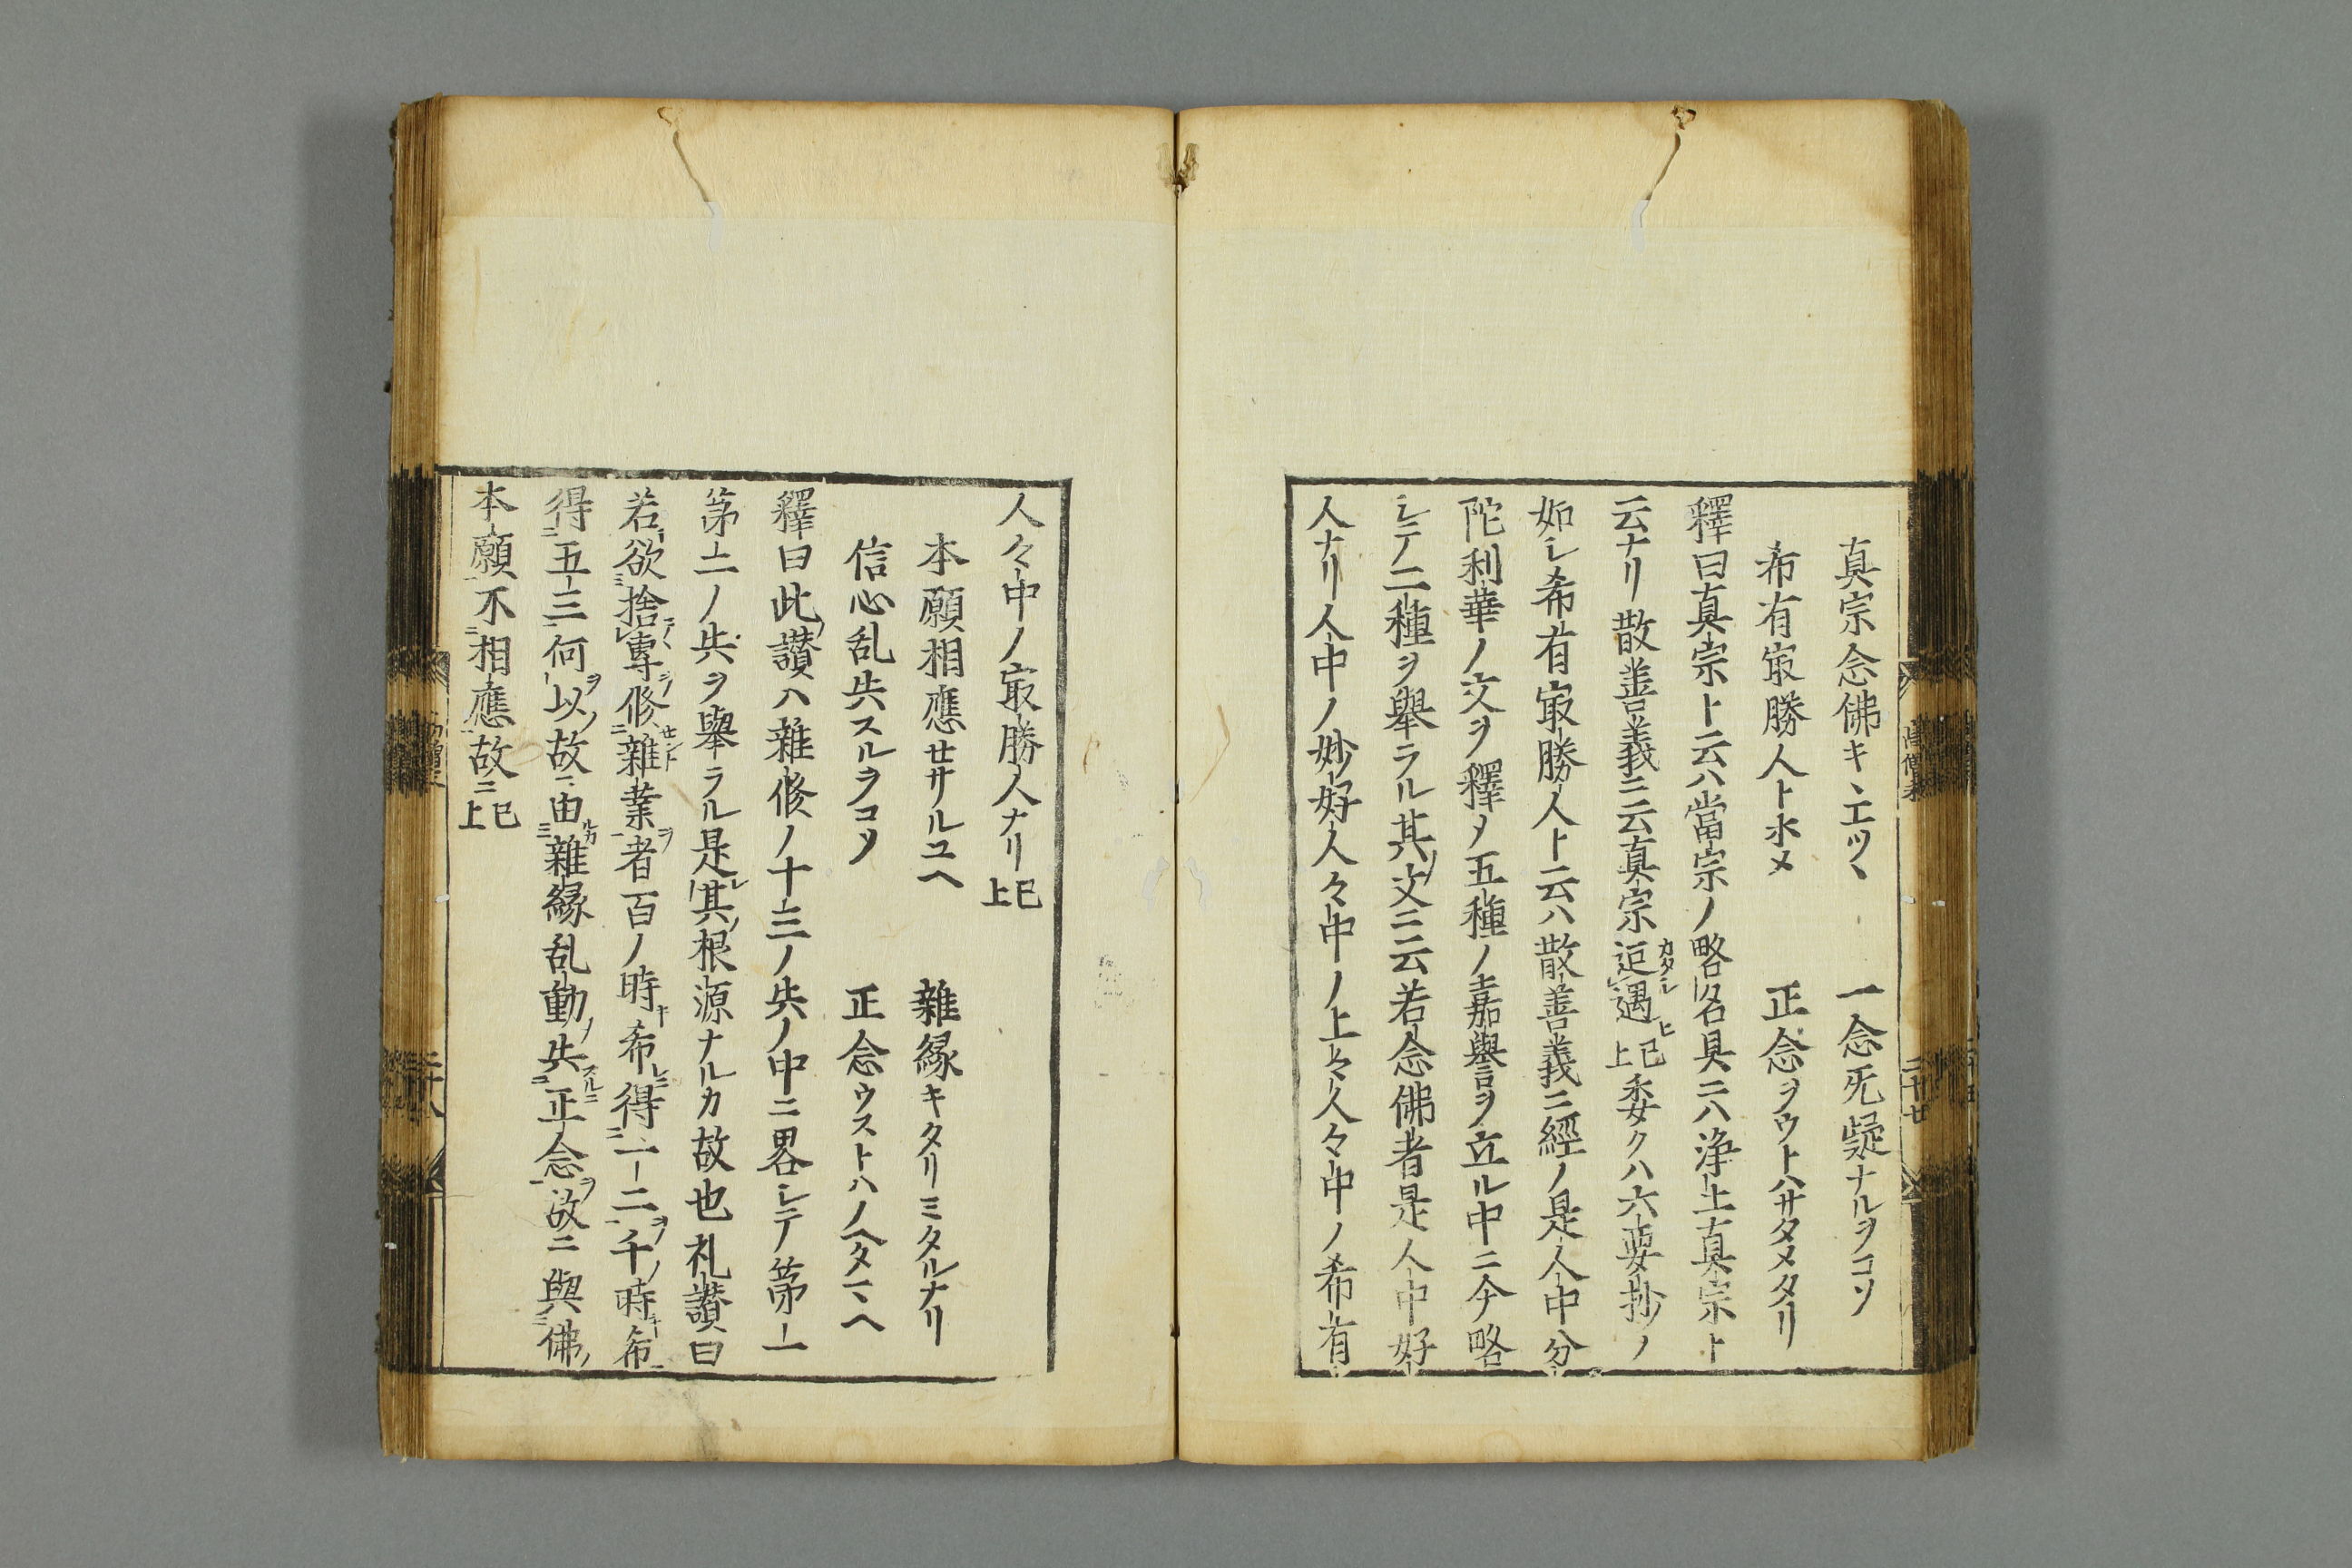 真宗念佛キヽエツヽ　一念旡疑ナルヲコソ
希有冣勝人トホメ　正念ヲウトハサタメタリ
釋曰真宗ト云ハ當宗ノ略名具ニハ浄土真宗ト
云ナリ散善義ニ云真宗叵カタシ遇ヒ已上委クハ六要抄ノ
如シ希有冣勝人ト云ハ散善義ニ經ノ是人中分
陀利華ノ文ヲ釋メ五種ノ嘉譽ヲ立ル中ニ今略
シテ二種ヲ舉ラル其ノ文ニ云若念佛者是人中好
人ナリ人中ノ妙好人々中ノ上々人々中ノ希有
人々中ノ冣勝人ナリ已上
本願相應せサルユヘ　雜縁キタリミタルナリ
信心乱失スルヲコソ　正念ウストハノヘタマヘ
釋曰此ノ讃ハ雜修ノ十三ノ失ノ中ニ畧シテ第一
第二ノ失ヲ舉ラル是レ其ノ根源ナルカ故也礼讃曰
若欲捨專修雜業者百ノ時希得一二千時希
得五三何以故由雜縁乱動失正念故ニ與佛
本願不相應故ニ已上
二十八